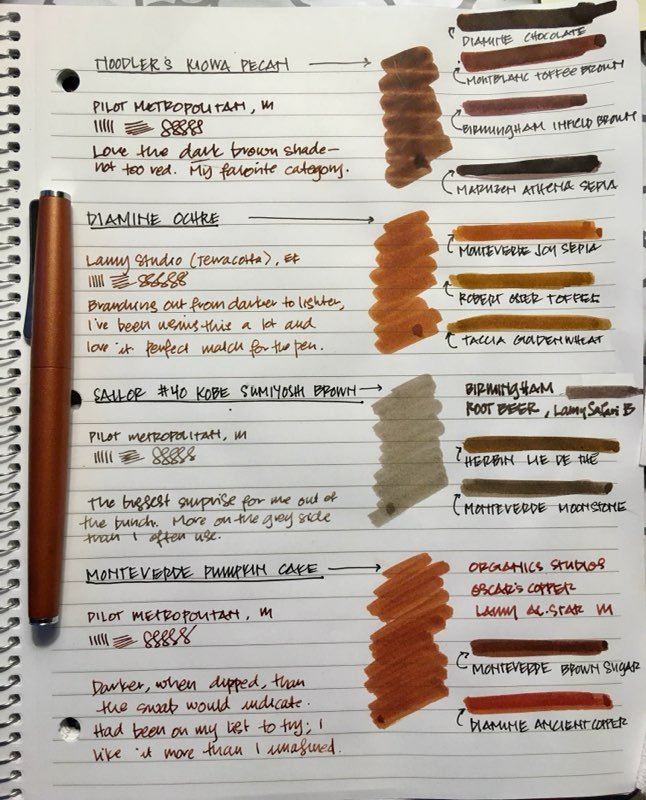 NOODLER'S KIOWA PECAN
DIAMINE CHOCOLATE
MONTBLANC TOFFEE BROWN
BIRMINGHAM INFIELD BROWN
MARUZEN ATHENA SEPIA
PILOT METROPOLITAN, M
Love the dark brown shade—
not too red. My favorite category.
DIAMINE OCHRE
MONTEVERDE JOY SEPIA
ROBERT OSTER TOFFEE
TACCIA GOLDEN WHEAT
Lamy Studio (Terracotta), EF
Branching out from darker to lighter,
I've been using this a lot and
love it. Perfect match for the pen.
SAILOR #40 KOBE SUMIYOSHI BROWN
BIRMINGHAM
ROOT BEER, Lamy Safari B
HERBIN LIE DE THÉ
MONTEVERDE MOONSTONE
PILOT METROPOLITAN, M
The biggest surprise for me out of
the bunch. More on the grey side
than I often use.
MONTEVERDE PUMPKIN CAKE
ORGANICS STUDIOS
OSCAR'S COPPER
LAMY AL-STAR M
MONTEVERDE BROWN SUGAR
DIAMINE ANCIENT COPPER
PILOT METROPOLITAN, M
Darker, when dipped, than
the swab would indicate.
Had been on my list to try; I
like it more than I imagined.